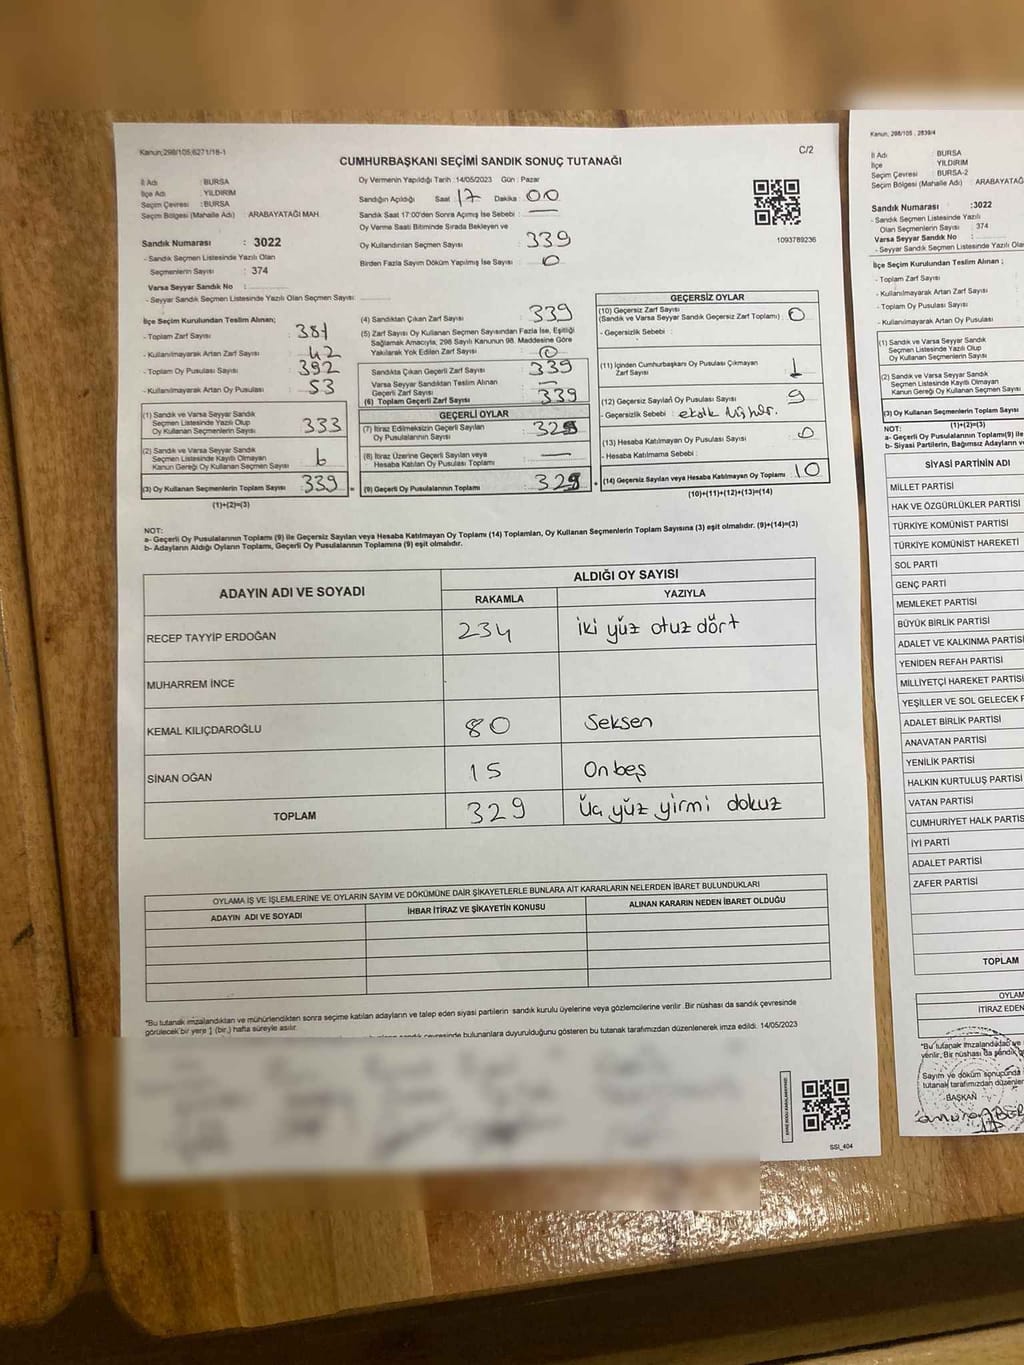 Kanun;298/105,6271/18-1
C/2
CUMHURBAŞKANI SEÇİMİ SANDIK SONUÇ TUTANAĞI
İl Adı : BURSA
İlçe Adı : YILDIRIM
Seçim Çevresi : BURSA
Seçim Bölgesi (Mahalle Adı) : ARABAYATAĞI MAH.
Sandık Numarası : 3022
- Sandık Seçmen Listesinde Yazılı Olan
Seçmenlerin Sayısı : 374
Varsa Seyyar Sandık No :
- Seyyar Sandık Seçmen Listesinde Yazılı Olan Seçmen Sayısı:
Oy Vermenin Yapıldığı Tarih :14/05/2023 Gün : Pazar
Sandığın Açıldığı Saat : 17 Dakika : 00
Sandık Saat 17:00'den Sonra Açımış İse Sebebi : —
Oy Verme Saati Bitiminde Sırada Bekleyen ve
Oy Kullandırılan Seçmen Sayısı : 339
Birden Fazla Sayım Döküm Yapılmış İse Sayısı : 0
1093789236
İlçe Seçim Kurulundan Teslim Alınan;
- Toplam Zarf Sayısı : 381
- Kullanılmayarak Artan Zarf Sayısı : 42
- Toplam Oy Pusulası Sayısı : 392
- Kullanılmayarak Artan Oy Pusulası : 53
(1) Sandık ve Varsa Seyyar Sandık
Seçmen Listesinde Yazılı Olup
Oy Kullanan Seçmenlerin Sayısı : 333
(2) Sandık ve Varsa Seyyar Sandık
Seçmen Listesinde Kayıtlı Olmayan
Kanun Gereği Oy Kullanan Seçmen Sayısı : 6
(3) Oy Kullanan Seçmenlerin Toplam Sayısı : 339
(1)+(2)=(3)
(4) Sandıktan Çıkan Zarf Sayısı : 339
(5) Zarf Sayısı Oy Kullanan Seçmen Sayısından Fazla İse, Eşitliği
Sağlamak Amacıyla, 298 Sayılı Kanunun 98. Maddesine Göre
Yakılarak Yok Edilen Zarf Sayısı : 0
Sandıkta Çıkan Geçerli Zarf Sayısı : 339
Varsa Seyyar Sandıktan Teslim Alınan
Geçerli Zarf Sayısı : —
(6) Toplam Geçerli Zarf Sayısı : 339
GEÇERLİ OYLAR
(7) İtiraz Edilmeksizin Geçerli Sayılan
Oy Pusulalarının Sayısı : 329
(8) İtiraz Üzerine Geçerli Sayılan veya
Hesaba Katılan Oy Pusulası Toplamı : —
(9) Geçerli Oy Pusulalarının Toplamı : 329
GEÇERSİZ OYLAR
(10) Geçersiz Zarf Sayısı
(Sandık ve Varsa Seyyar Sandık Geçersiz Zarf Toplamı) : 0
- Geçersizlik Sebebi :
(11) İçinden Cumhurbaşkanı Oy Pusulası Çıkmayan
Zarf Sayısı : 1
(12) Geçersiz Sayılan Oy Pusulası Sayısı : 9
- Geçersizlik Sebebi :
(13) Hesaba Katılmayan Oy Pusulası Sayısı : 0
- Hesaba Katılmama Sebebi :
(14) Geçersiz Sayılan veya Hesaba Katılmayan Oy Toplamı : 10
(10)+(11)+(12)+(13)=(14)
NOT:
a- Geçerli Oy Pusulalarının Toplamı (9) ile Geçersiz Sayılan veya Hesaba Katılmayan Oy Toplamı (14) Toplamları, Oy Kullanan Seçmenlerin Toplam Sayısına (3) eşit olmalıdır. (9)+(14)=(3)
b- Adayların Aldığı Oyların Toplamı, Geçerli Oy Pusulalarının Toplamına (9) eşit olmalıdır.
ADAYIN ADI VE SOYADI
ALDIĞI OY SAYISI
RAKAMLA YAZIYLA
RECEP TAYYİP ERDOĞAN 234 iki yüz otuz dört
MUHARREM İNCE
KEMAL KILIÇDAROĞLU 80 Seksen
SİNAN OĞAN 15 On beş
TOPLAM 329 Üç yüz yirmi dokuz
OYLAMA İŞ VE İŞLEMLERİNE VE OYLARIN SAYIM VE DÖKÜMÜNE DAİR ŞİKAYETLERLE BUNLARA AİT KARARLARIN NELERDEN İBARET BULUNDUKLARI
ADAYIN ADI VE SOYADI İHBAR İTİRAZ VE ŞİKAYETİN KONUSU ALINAN KARARIN NEDEN İBARET OLDUĞU
"Bu tutanak imzalandıktan ve mühürlendikten sonra seçime katılan adayların ve talep eden siyasi partilerin sandık kurulu üyelerine veya gözlemcilerine verilir .Bir nüshası da sandık çevresinde
görülecek bir yere 1 (bir,) hafta süreyle asılır.
çevresinde bulunanlara duyurulduğunu gösteren bu tutanak tarafımızdan düzenlenerek imza edildi. 14/05/2023
SSI_404
Kanun, 298/105 , 2839/4
İl Adı : BURSA
İlçe : YILDIRIM
Seçim Çevresi : BURSA-2
Seçim Bölgesi (Mahalle Adı) : ARABAYATAĞ
Sandık Numarası :3022
- Sandık Seçmen Listesinde Yazılı
Olan Seçmenlerin Sayısı : 374
Varsa Seyyar Sandık No :
- Seyyar Sandık Seçmen Listesinde Yazılı Olan
İlçe Seçim Kurulundan Teslim Alınan ;
- Toplam Zarf Sayısı
- Kullanılmayarak Artan Zarf Sayısı
- Toplam Oy Pusulası Sayısı
- Kullanılmayarak Artan Oy Pusulası
(1) Sandık ve Varsa Seyyar Sandık
Seçmen Listesinde Yazılı Olup
Oy Kullanan Seçmenlerin Sayısı
(2) Sandık ve Varsa Seyyar Sandık
Seçmen Listesinde Kayıtlı Olmayan
Kanun Gereği Oy Kullanan Seçmen Sayısı
(3) Oy Kullanan Seçmenlerin Toplam Sayısı
(1)+(2)=(3)
NOT:
a- Geçerli Oy Pusulalarının Toplamı(9) ile
b- Siyasi Partilerin, Bağımsız Adayların
SİYASİ PARTİNİN ADI
MİLLET PARTİSİ
HAK VE ÖZGÜRLÜKLER PARTİSİ
TÜRKİYE KOMÜNİST PARTİSİ
TÜRKİYE KOMÜNİST HAREKETİ
SOL PARTİ
GENÇ PARTİ
MEMLEKET PARTİSİ
BÜYÜK BİRLİK PARTİSİ
ADALET VE KALKINMA PARTİSİ
YENİDEN REFAH PARTİSİ
MİLLİYETÇİ HAREKET PARTİSİ
YEŞİLLER VE SOL GELECEK P
ADALET BİRLİK PARTİSİ
ANAVATAN PARTİSİ
YENİLİK PARTİSİ
HALKIN KURTULUŞ PARTİSİ
VATAN PARTİSİ
CUMHURİYET HALK PARTİS
İYİ PARTİ
ADALET PARTİSİ
ZAFER PARTİSİ
TOPLAM
OYLAM
İTİRAZ EDEN
"Bu tutanak imzalandıktan ve
verilir. Bir nüshası da sandık
Sayım ve döküm sonucunda
tutanak tarafımızdan düzenlen
BAŞKAN